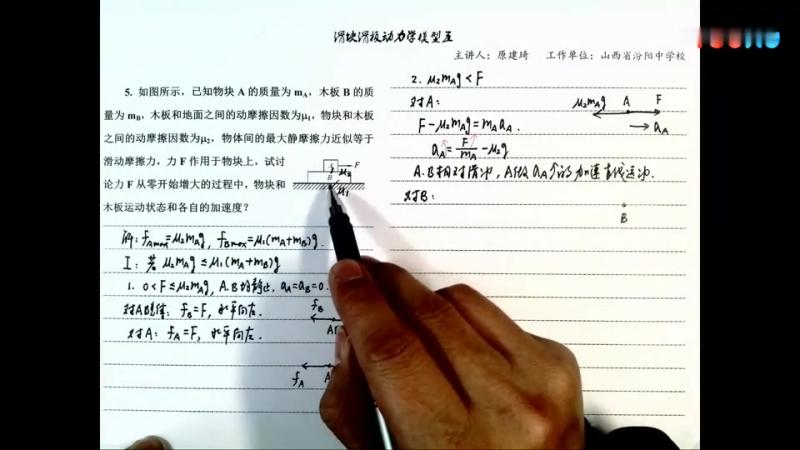 滑块滑板动力学模型五
主讲人：原建琦 工作单位：山西省汾阳中学校
5. 如图所示，已知物块 A 的质量为 mA，木板 B 的质
量为 mB，木板和地面之间的动摩擦因数为μ1，物块和木板
之间的动摩擦因数为μ2，物体间的最大静摩擦力近似等于
滑动摩擦力，力 F 作用于物块上，试讨
论力 F 从零开始增大的过程中，物块和
木板运动状态和各自的加速度？
F
B
μ2
μ1
解: fAmax=μ2mAg, fBmax=μ1(mA+mB)g.
I: 若 μ2mAg≤μ1(mA+mB)g
1. 0<F≤μ2mAg, A.B均静止. aA=aB=0.
对AB整体: fB=F, 水平向左.
fB
对A: fA=F, 水平向左.
fA A
2. μ2mAg<F
对A:
μ2mAg A F
aA
F-μ2mAg=mAaA.
aA=F/mA-μ2g
A.B相对滑动, A做aA↑的加速直线运动.
对B:
B